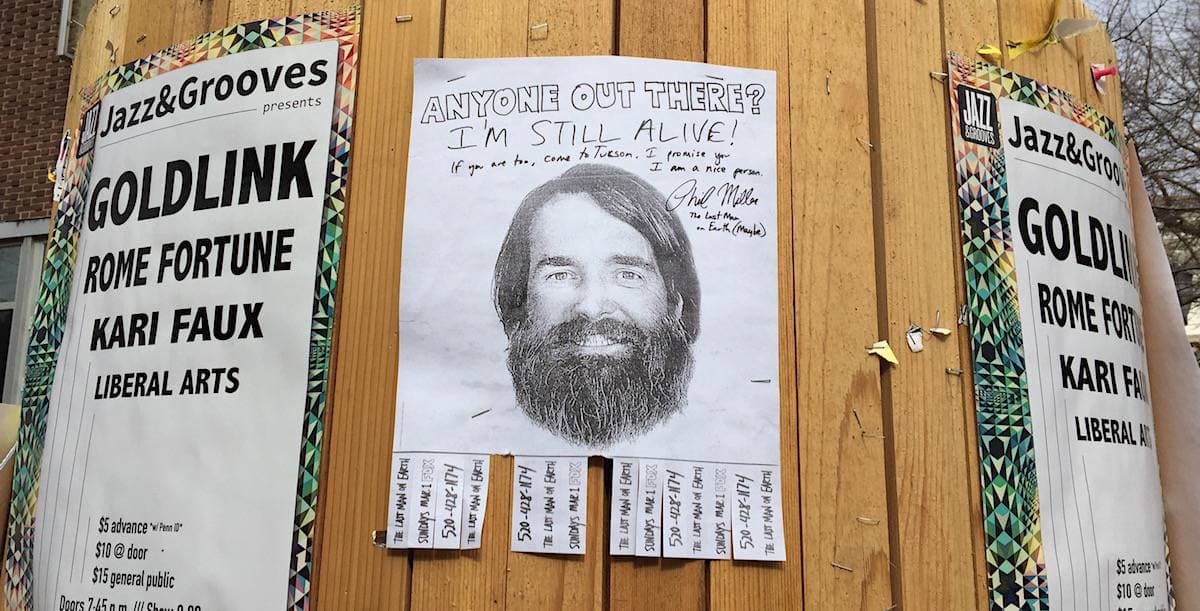 JAZZ
Jazz&Grooves
presents
GOLDLINK
ROME FORTUNE
KARI FAUX
LIBERAL ARTS
$5 advance *w/ Penn ID*
$10 @ door
$15 general public
Doors 7:45 p.m. /// Show
ANYONE OUT THERE?
I'M STILL ALIVE!
If you are too, come to Tucson. I promise you
I am a nice person.
Phil Miller
The Last Man
on Earth (Maybe)
THE LAST MAN ON EARTH
SUNDAYS MAR. 1 FOX
520-428-1174
THE LAST MAN ON EARTH
520-428-1174
THE LAST MAN ON EARTH
SUNDAYS MAR. 1 FOX
THE LAST MAN ON EARTH
SUNDAYS MAR. 1 FOX
520-428-1174
THE LAST MAN ON EARTH
SUNDAYS MAR. 1 FOX
520-428-1174
THE LAST MAN ON EARTH
JAZZ
&GROOVES
Jazz&Groo
GOLDLI
ROME FORT
KARI FA
LIBERAL A
$5 advance
$10 @ door